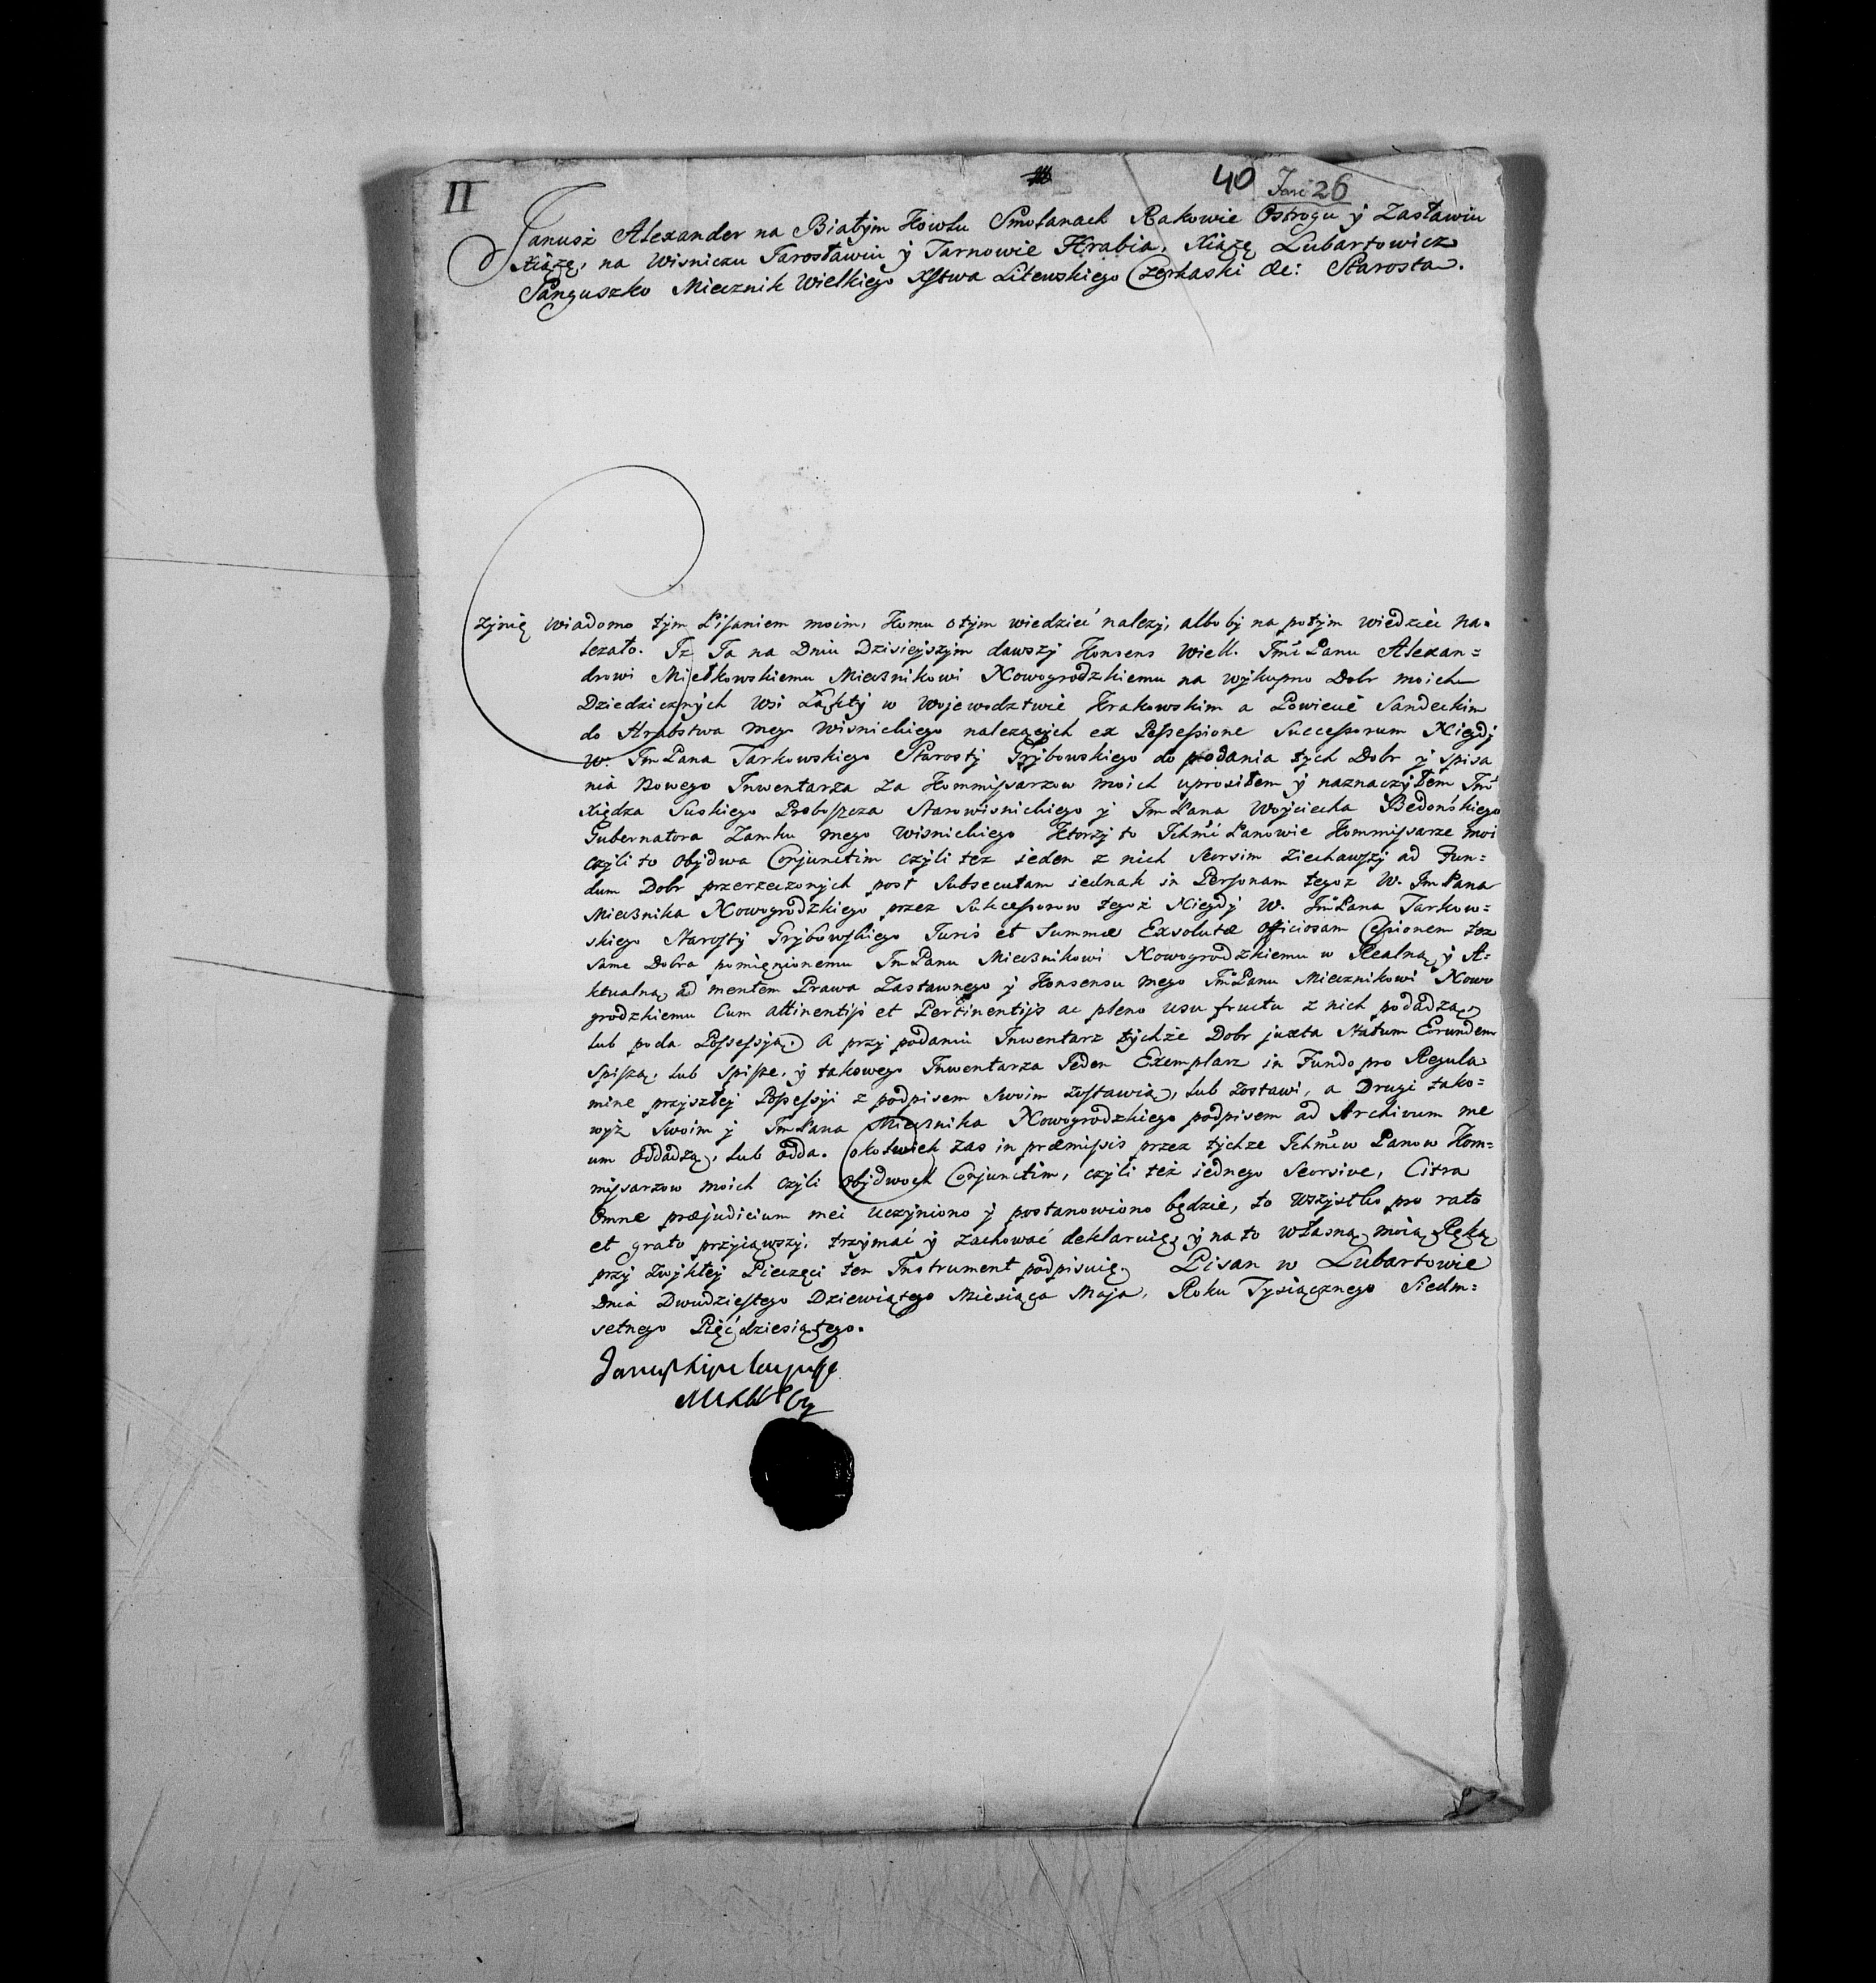 II
40 Jan: 26
Janusz Alexander na Białym Kowlu Smolanach Rakowie Ostrogu y Zasławiu
Xiążę, na Wisniczu Jarosławiu y Tarnowie Hrabia, Xiążę Lubartowicz
Sanguszko Miecznik Wielkiego Xstwa Litewskiego Czerkaski &c: Starosta.
Czynię wiadomo tym Pisaniem moim, komu o tym wiedzieć nalezy, albo by na potym wiedzieć na=
lezało. Iz Ja na Dniu Dzisieyszym dawszy Konsens Wiel. Jmci Panu Alexan=
drowi Miełkowskiemu Miecznikowi Nowogrodzkiemu na wykupno Dobr moich
Dziedzicznych Wsi Łąkty w Wojewodztwie Krakowskim a Powiecie Sandeckim
do Hrabstwa mego Wisnickiego nalezących ex Possessione Successorum Niegdy
W. Jm Pana Tarkowskiego Starosty Grybowskiego do podania tych Dobr y spisa
nia Nowego Inwentarza za Kommissarzow moich uprosiłem y naznaczyłem Jmci
Xiędza Suskiego Proboszcza Starowisnickiego y Jm Pana Woyciecha Bedońskiego
Gubernatora Zamku mego Wisnickiego Ktorzy to Ichmci Panowie Kommissarze moi
czyli to obydwa Conjunctim czyli tez ieden z nich Seorsim ziechawszy ad Fun=
dum Dobr przerzeczonych post subsecutam iednak in Personam tegoz W. Jm Pana
Miecznika Nowogrodzkiego przez Sukcessorow tegoż Niegdy W. Jm Pana Tarkow=
skiego Starosty Grybowskiego Juris et Summæ Exsolutæ officiosam Cessionem toz
same Dobra pomięnionemu Jm Panu Miecznikowi Nowogrodzkiemu w Realną y A=
ktualną ad mentem Prawa Zastawnego y Konsensu mego Jm Panu Miecznikowi Nowo
grodzkiemu Cum attinentijs et Pertinentijs ac pleno usu fructu z nich podadzą
lub poda Possessyą. A przy podaniu Inwentarz tychże Dobr juxta Statum Eorundem
spiszą, lub spisze, y takowego Inwentarza Jeden Exemplarz in Fundo pro Regula
mine przyszłey Possessyi z podpisem Swoim zostawią, lub zostawi, a Drugi tako=
wyż Swoim y Jm Pana Miecznika Nowogrodzkiego podpisem ad Archivum me
um oddadzą, lub odda. Cokolwiek zas in præmissis przez tychze Ichmciw Panow Kom=
missarzow moich czyli obydwoch Conjunctim, czyli też iednego Seorsive, Citra
Omne præjudicium mei uczyniono y postanowiono będzie, to wszystko pro rato
et grato przyiąwszy, trzymać y zachować deklaruię, y na to własną moią Ręką
przy zwykłey Pieczęci ten Instrument podpisuię. Pisan w Lubartowie
Dnia Dwudziestego Dziewiątego Miesiąca Maja, Roku Tysiącznego Siedm=
setnego Pięćdziesiątego.